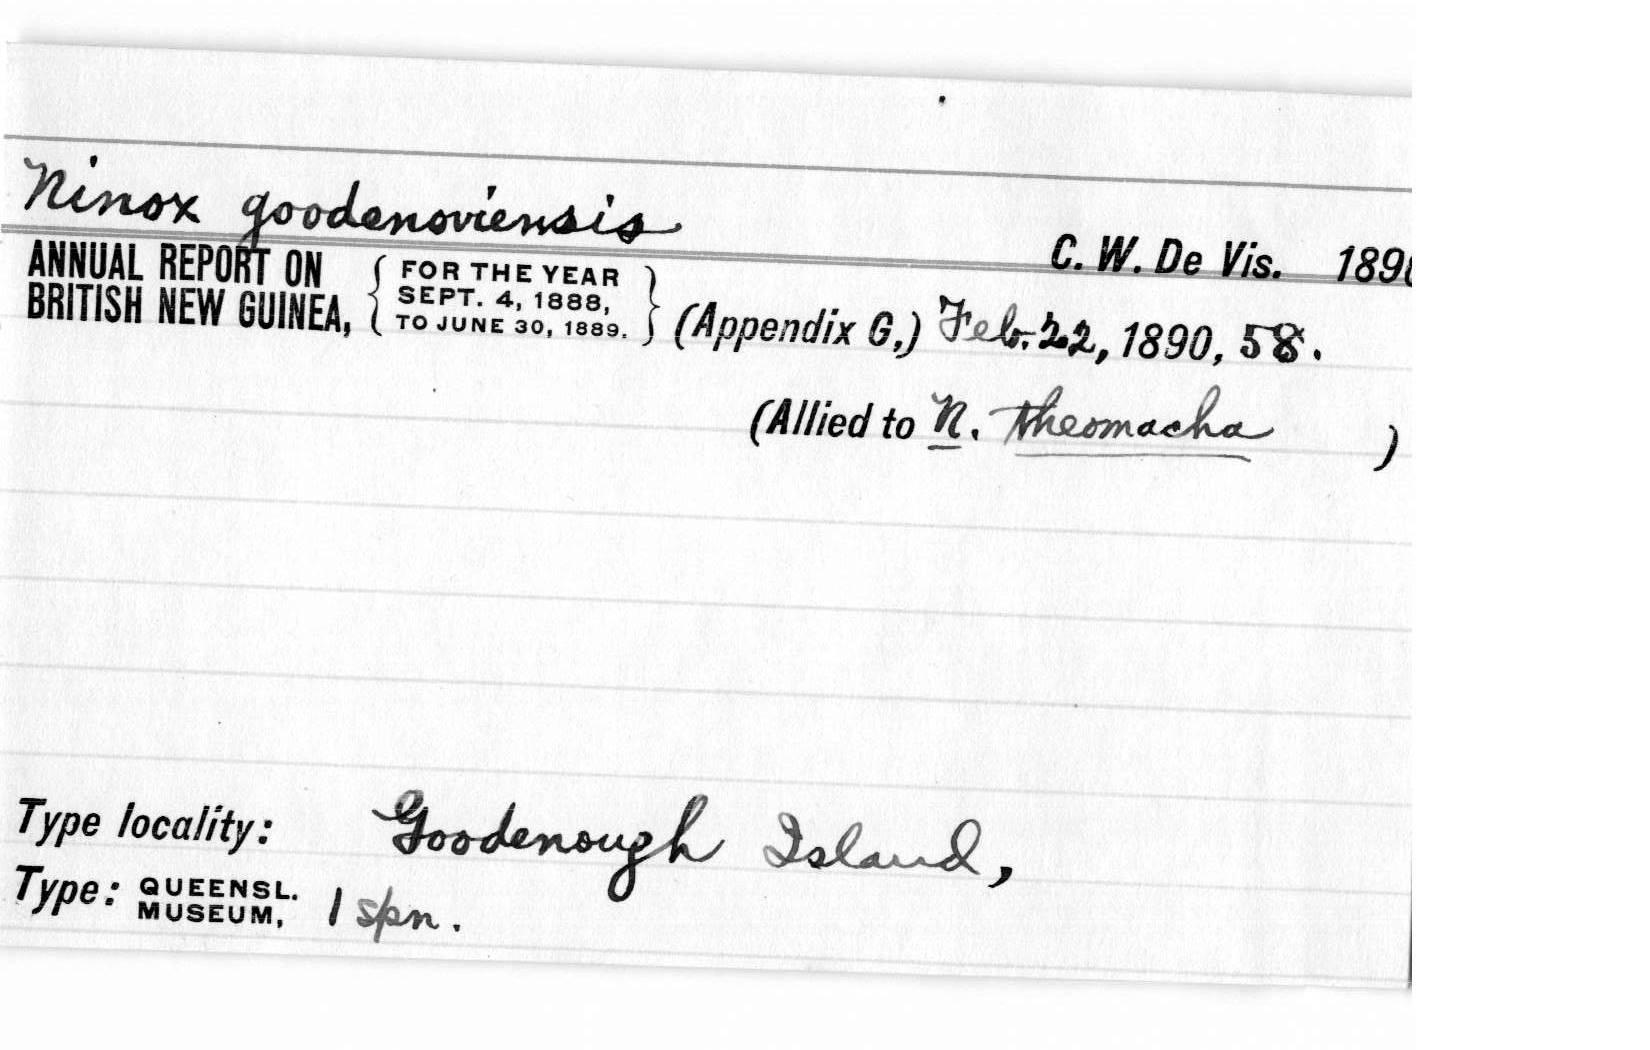 Ninox goodenoviensis
C. W. De Vis. 1890
ANNUAL REPORT ON BRITISH NEW GUINEA, { FOR THE YEAR SEPT. 4, 1888, TO JUNE 30, 1889. } (Appendix G,) Feb. 22, 1890, 58.
(Allied to N. theomacha )
Type locality: Goodenough Island,
Type: QUEENSL. MUSEUM, 1 spn.